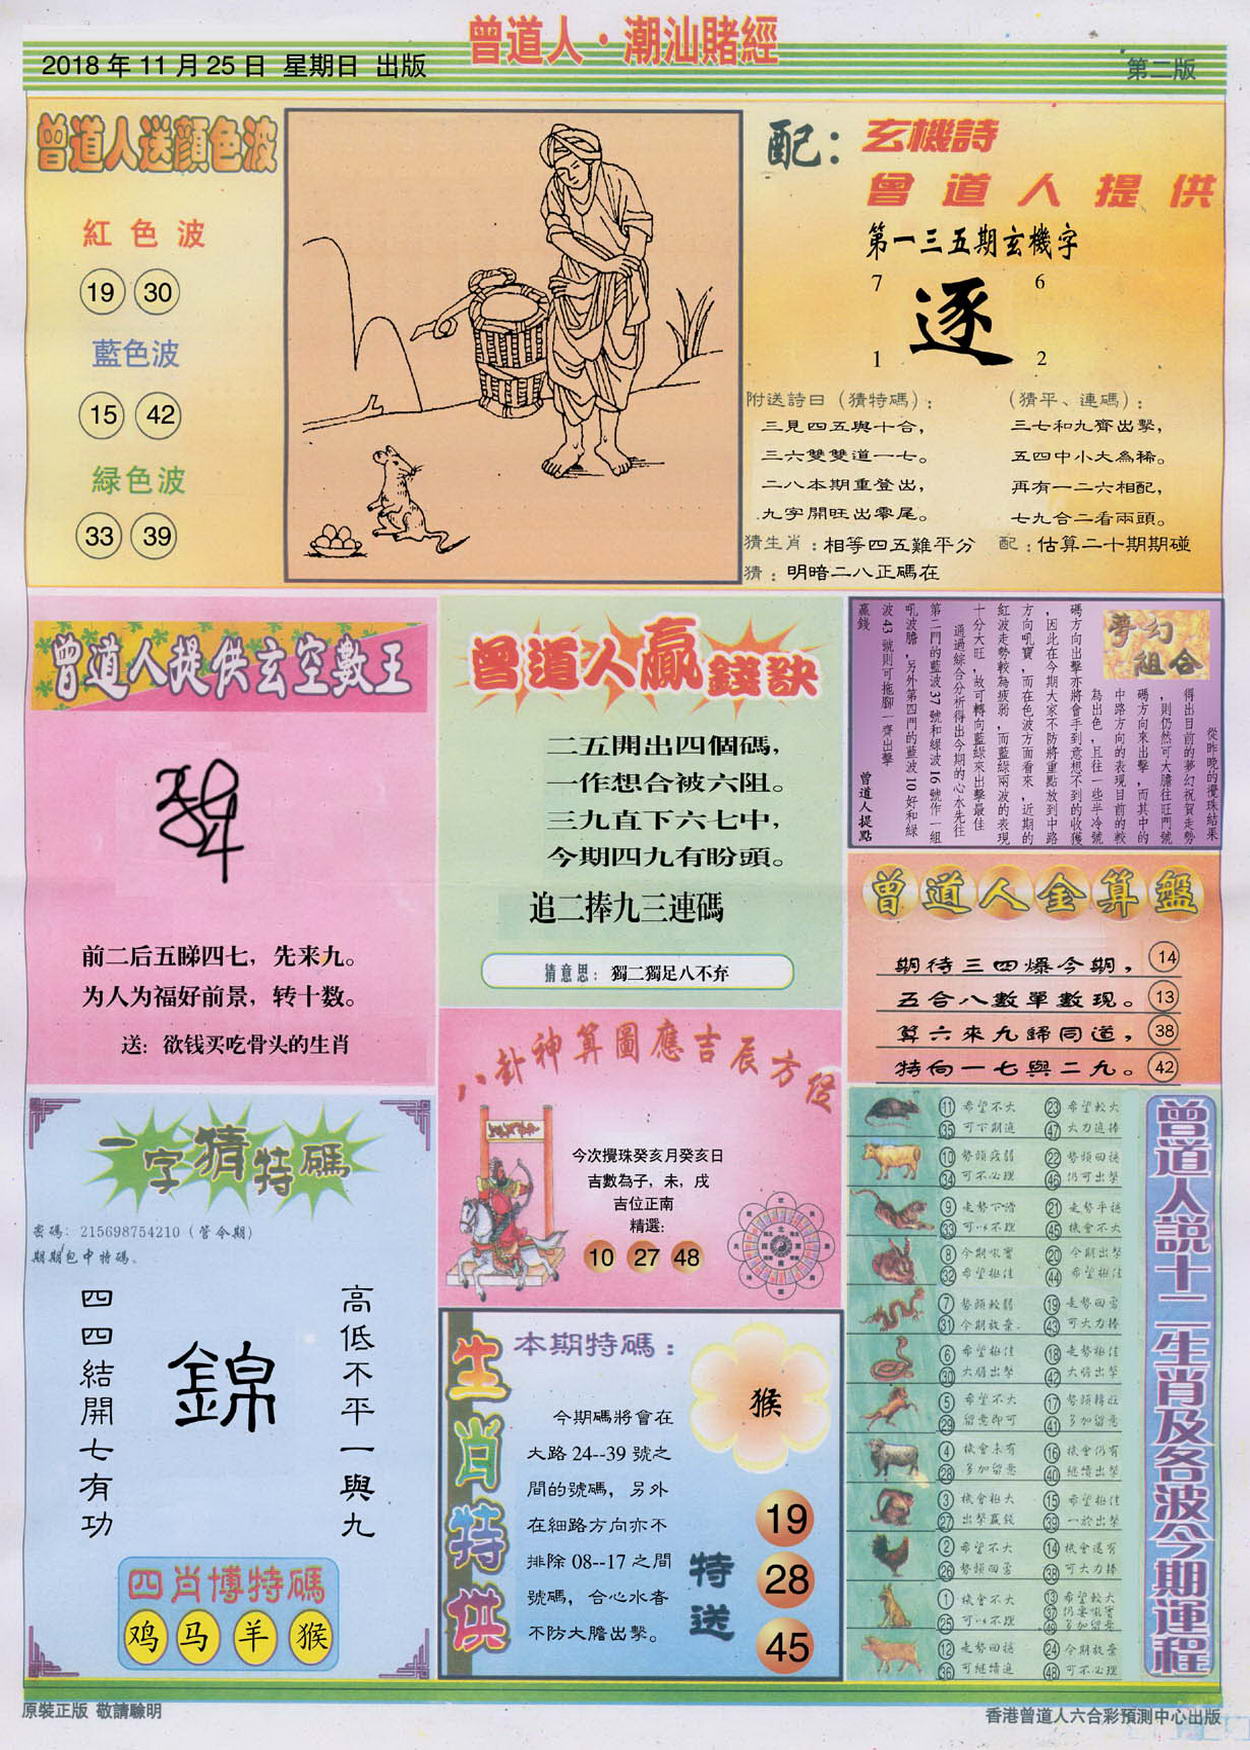 曾道人·潮汕賭經
2018年11月25日 星期日 出版
第二版
曾道人送顔色波
紅色波
19 30
藍色波
15 42
緑色波
33 39
配：玄機詩
曾道人提供
第一三五期玄機字
7 6
逐
1 2
附送詩曰（猜特碼）：
三見四五與十合，
三六雙雙道一七。
二八本期重登出，
九字開旺出零尾。
（猜平、連碼）：
三七和九齊出擊，
五四中小大為稀。
再有一二六相配，
七九合二看兩頭。
猜生肖：相等四五難平分
配：估算二十期期碰
猜：明暗二八正碼在
曾道人提供玄空數王
前二后五睇四七，先来九。
为人为福好前景，转十数。
送：欲钱买吃骨头的生肖
曾道人贏錢訣
二五開出四個碼，
一作想合被六阻。
三九直下六七中，
今期四九有盼頭。
追二捧九三連碼
猜意思：獨二獨足八不弃
夢幻組合
從昨晚的攪珠結果
得出目前的夢幻祝賀走勢
，則仍然可大膽往旺門號
碼方向來出擊，而其中的
中路方向的表現目前的較
為出色，且往一些半冷號
碼方向出擊亦將會手到意想不到的收獲
，因此在今期大家不防將重點放到中路
方向吼寶，而在色波方面看來，近期的
紅波走勢較為疲弱，而藍綠兩波的表現
十分大旺，故可轉向藍綠來出擊最佳
通過綜合分析得出今期的心水先往
第二門的藍波37號和綠波16號作一組
吼波膽，另外第四門的藍波10好和綠
波43號則可拖腳一齊出擊
贏錢
曾道人提點
曾道人金算盤
期待三四爆今期， 14
五合八數單數現。 13
算六來九歸同道， 38
特向一七與二九。 42
八卦神算圖應吉辰方位
今次攪珠癸亥月癸亥日
吉數為子，未，戌
吉位正南
精選：
10 27 48
一字猜特碼
密碼：215698754210（管令期）
期期包中特碼。
高低不平一與九
錦
四四結開七有功
四肖博特碼
鸡 马 羊 猴
生肖特供
本期特碼：
猴
今期碼將會在
大路24--39號之
間的號碼，另外
在細路方向亦不
排除08--17之間
號碼，合心水者
不防大膽出擊。
特送
19
28
45
曾道人説十二生肖及各波今期運程
11 希望不大 23 希望較大
35 可下期追 47 大力追捧
10 勢頭疲弱 22 勢頭回穩
34 可不必理 46 仍可出擊
9 走勢下滑 21 走勢平穩
33 可以不理 45 機會不大
8 今期吼寶 20 今期出擊
32 希望極佳 44 希望極佳
7 勢頭較弱 19 走勢回勇
31 今期放棄 43 可大力捧
6 希望極佳 18 走勢極佳
30 大膽出擊 42 大膽出擊
5 希望不大 17 勢頭轉旺
29 留意即可 41 多加留意
4 機會未有 16 機會仍有
28 多加留意 40 繼續出擊
3 機會極大 15 希望極佳
27 出擊贏錢 39 一於出擊
2 希望不大 14 機會還有
26 勢頭回勇 38 可大力捧
1 機會不大 13 希望較大
25 可以不理 37 仍要吼實
49 多加留意
12 走勢回穩 24 今期放棄
36 可繼續追 48 可不必理
原裝正版 敬請驗明
香港曾道人六合彩預測中心出版